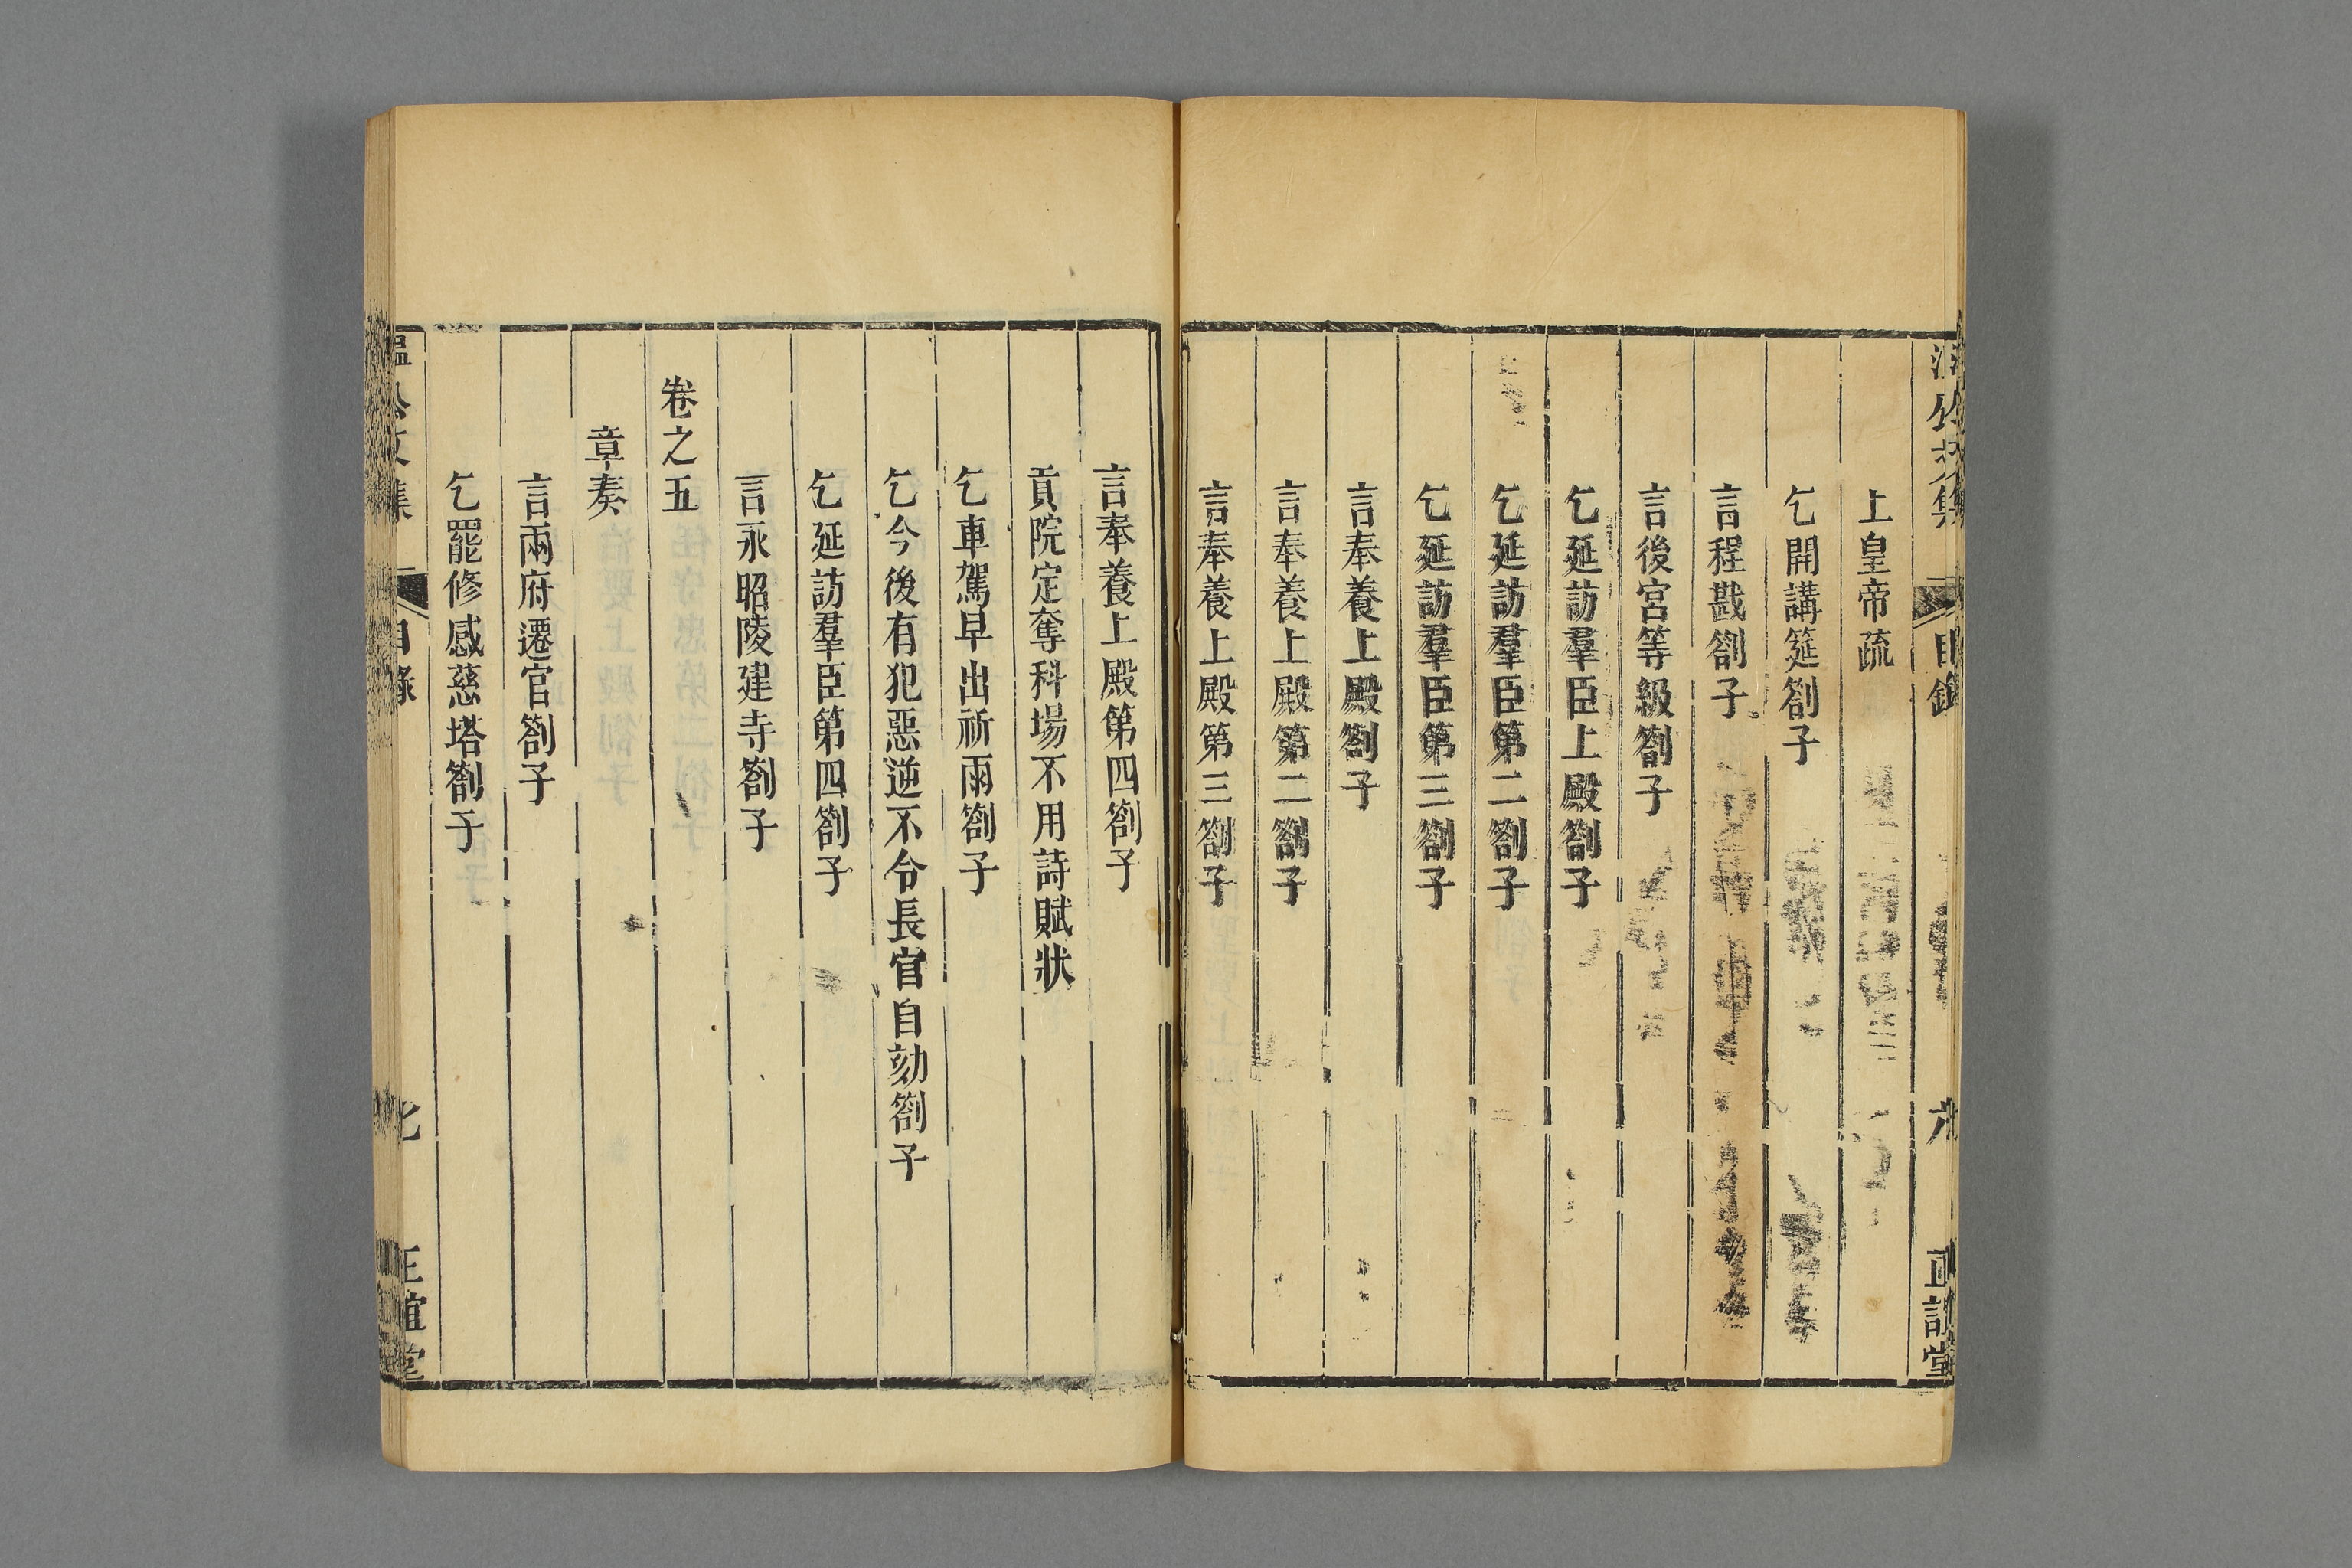 上皇帝疏
乞開講筵劄子
言程戡劄子
言後宮等級劄子
乞延訪羣臣上殿劄子
乞延訪羣臣第二劄子
乞延訪羣臣第三劄子
言奉養上殿劄子
言奉養上殿第二劄子
言奉養上殿第三劄子
言奉養上殿第四劄子
貢院定奪科場不用詩賦狀
乞車駕早出祈雨劄子
乞今後有犯惡逆不令長官自劾劄子
乞延訪羣臣第四劄子
言永昭陵建寺劄子
卷之五
章奏
言兩府遷官劄子
乞罷修感慈塔劄子
溫公文集
目錄
正誼堂